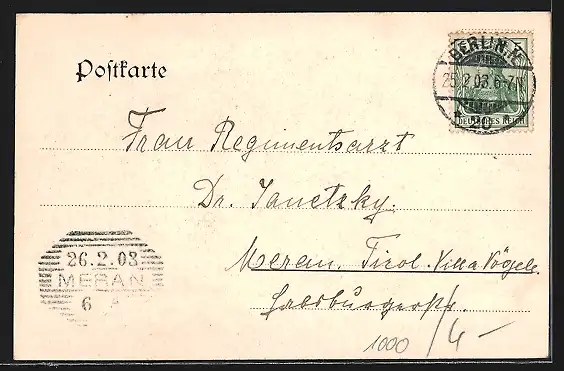 Postkarte
BERLIN.N.
25.2.03.6-7N.
20
DEUTSCHES REICH
Frau Regimentsarzt
Dr. Janetzky.
Meran. Tirol. Villa Vögele
Habsburgerstr.
26.2.03
MERAN
6
1000
/4 -